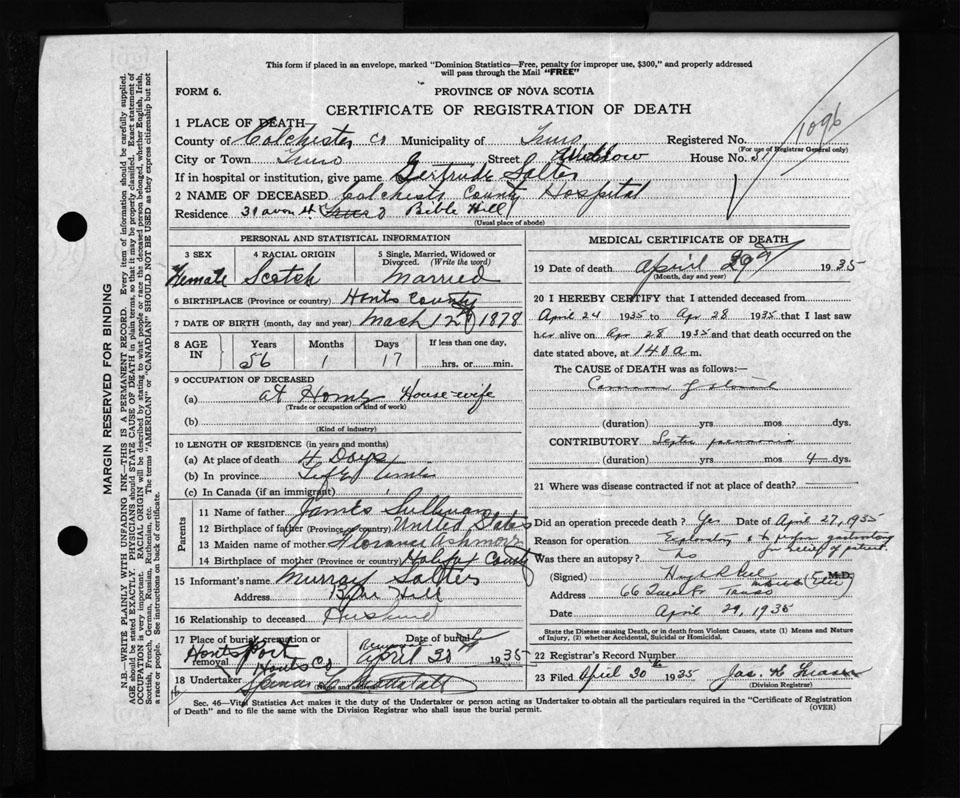 This form if placed in an envelope, marked "Dominion Statistics—Free, penalty for improper use, $300," and properly addressed
will pass through the Mail "FREE"
FORM 6.
PROVINCE OF NOVA SCOTIA
CERTIFICATE OF REGISTRATION OF DEATH
1096
1 PLACE OF DEATH
County of Colchester Co Municipality of Truro Registered No.
(For use of Registrar General only)
City or Town Truro Street Willow House No.
If in hospital or institution, give name Gertrude Salter
2 NAME OF DECEASED Colchester County Hospital
Residence Truro Bible Hill
(Usual place of abode)
PERSONAL AND STATISTICAL INFORMATION
3 SEX 4 RACIAL ORIGIN 5 Single, Married, Widowed or
Divorced. (Write the word)
Female Scotch Married
6 BIRTHPLACE (Province or country) Hants County
7 DATE OF BIRTH (month, day and year) Mach 12th 1878
8 AGE IN Years Months Days If less than one day,
56 1 17 hrs. or min.
9 OCCUPATION OF DECEASED
(a) at Home House-wife
(Trade or occupation or kind of work)
(b)
(Kind of industry)
10 LENGTH OF RESIDENCE (in years and months)
(a) At place of death 4 Days
(b) In province Life time
(c) In Canada (if an immigrant)
Parents
11 Name of father James Sullivan
12 Birthplace of father (Province or country) United States
13 Maiden name of mother Florance Ashmore
14 Birthplace of mother (Province or country) Halifax County
15 Informant's name Murray Salter
Address Bible Hill
16 Relationship to deceased Husband
17 Place of burial, cremation or removal Date of burial
Hantsport Hants Co Removal April 30 1935
18 Undertaker Spencer
(Name and address)
MEDICAL CERTIFICATE OF DEATH
19 Date of death April 29th 1935
(Month, day and year)
20 I HEREBY CERTIFY that I attended deceased from
April 24 1935 to Apr 28 1935 that I last saw
her alive on Apr 28 1935 and that death occurred on
date stated above, at 1 40 a m.
The CAUSE OF DEATH was as follows:—
(duration) yrs mos dys.
CONTRIBUTORY Septic pneumonia
(duration) yrs mos 4 dys.
21 Where was disease contracted if not at place of death?
Did an operation precede death? Yes Date of April 27, 1935
Reason of operation Exploratory & to perform gastrostomy
for relief of patient
Was there an autopsy? No
(Signed) M.D.
Address 66 Truro
Date April 29, 1935
State the Disease causing Death, or in death from Violent Causes, state (1) Means and Nature
of Injury, (2) whether Accidental, Suicidal or Homicidal.
22 Registrar's Record Number
23 Filed April 30th 1935 Jas.
(Division Registrar)
Sec. 46—Vital Statistics Act makes it the duty of the Undertaker or person acting as Undertaker to obtain all the particulars required in the "Certificate of Registration
of Death" and to file the same with the Division Registrar who shall issue the burial permit.
(OVER)
MARGIN RESERVED FOR BINDING
N.B.—WRITE PLAINLY WITH UNFADING INK—THIS IS A PERMANENT RECORD. Every item of information should be carefully supplied.
AGE should be stated EXACTLY. PHYSICIANS should STATE CAUSE OF DEATH in plain terms, so that it may be properly classified. Exact statement of
OCCUPATION is very important. RACIAL ORIGIN will be described by stating to what people or race the deceased person belonged, whether English, Irish,
Scottish, French, German, Russian, Ruthenian, etc. The terms "AMERICAN" or "CANADIAN" SHOULD NOT BE USED as they express citizenship but not
a race or people. See instructions on back of certificate.